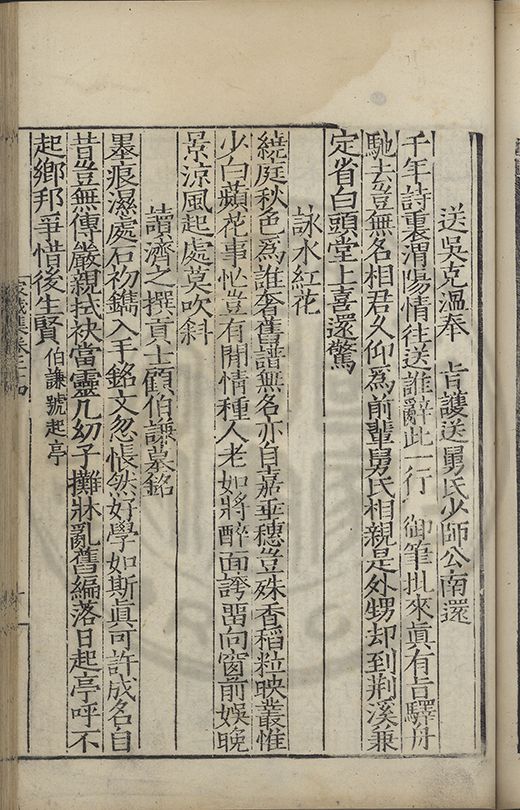 送吳克溫奉　旨護送舅氏少師公南還
千年詩裏渭陽情往送誰辭此一行　御筆批來真有旨驛舟
馳去豈無名相君久仰為前輩舅氏相親是外甥却到荆溪兼
定省白頭堂上喜還驚
詠水紅花
繞庭秋色為誰奢舊譜無名亦自嘉垂穗豈殊香稻粒映叢惟
少白蘋花事忙豈有閒情種人老如將醉面誇畱向窗前娛晚
景涼風起處莫吹斜
讀濟之撰貢士顧伯謙墓銘
墨痕濕處石初鐫入手銘文忽悵然好學如斯真可許成名自
昔豈無傳嚴親拭袂當靈几幼子攤牀亂舊編落日起亭呼不
起鄉邦爭惜後生賢　伯謙號起亭
家藏集卷二十四